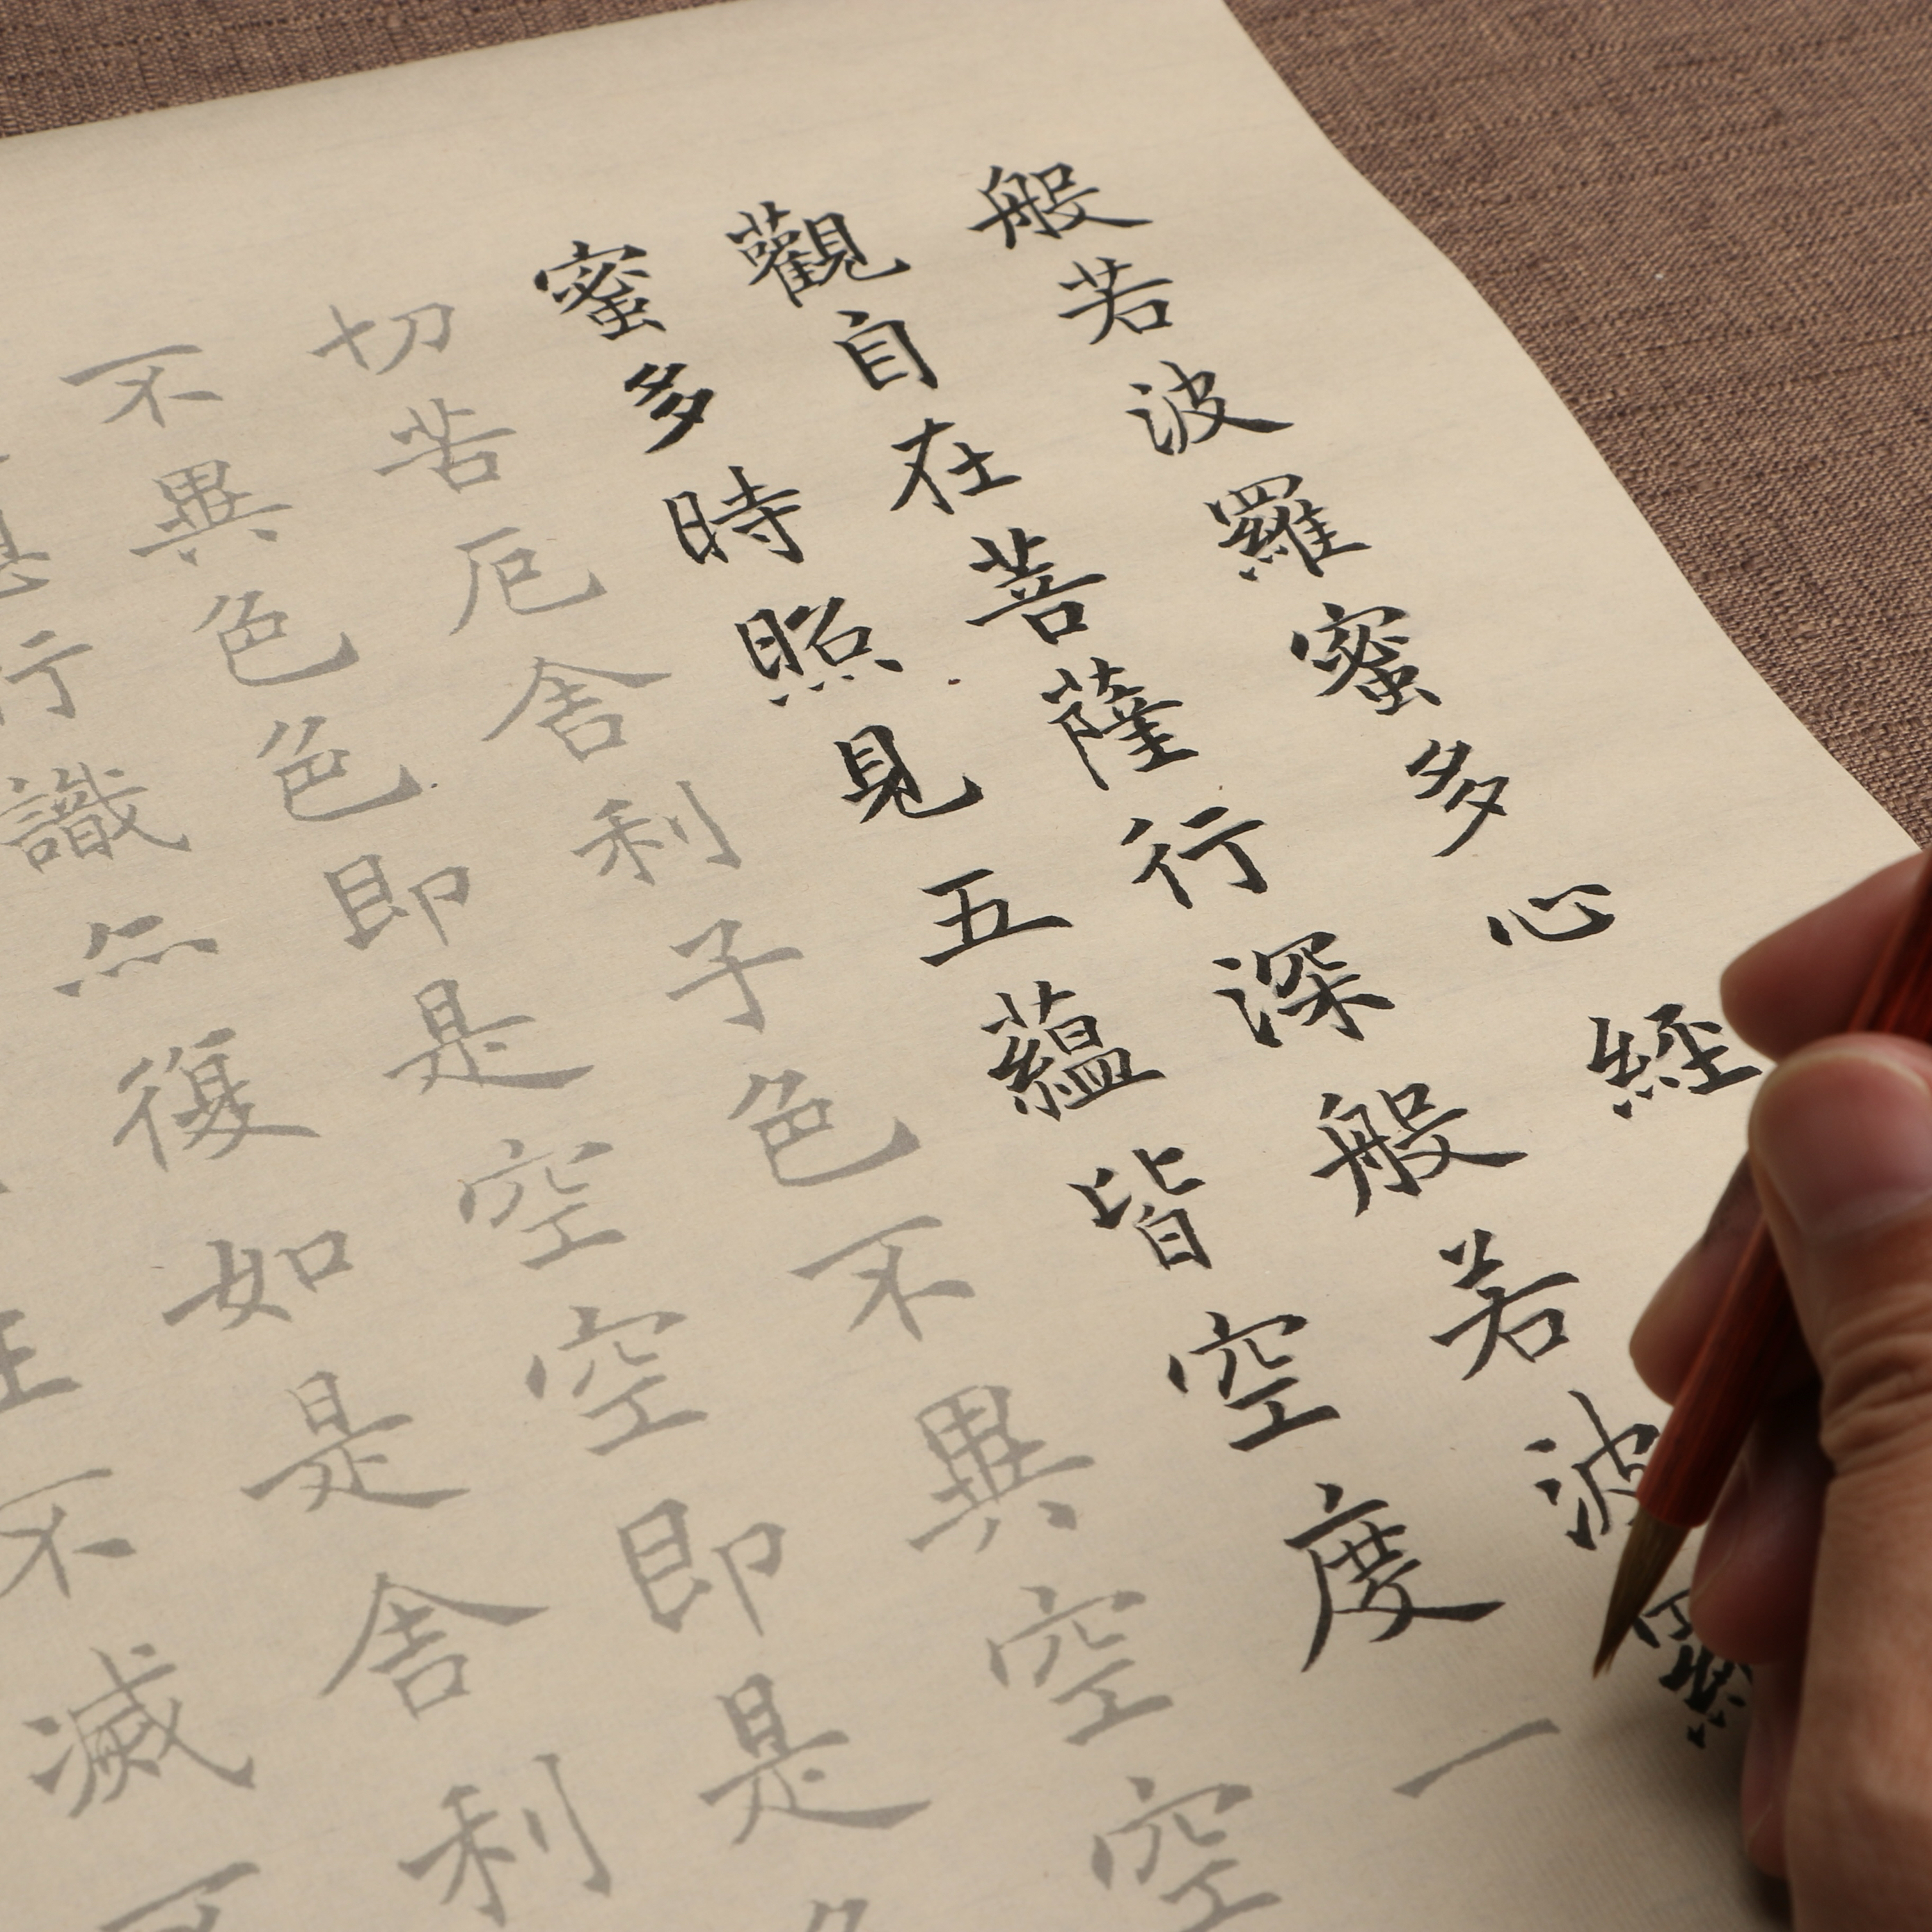 般若波羅蜜多心經
觀自在菩薩行深般若波羅
蜜多時照見五蘊皆空度一
切苦厄舍利子色不異空空
不異色色即是空空即是色
行識亦復如是舍利
不滅不